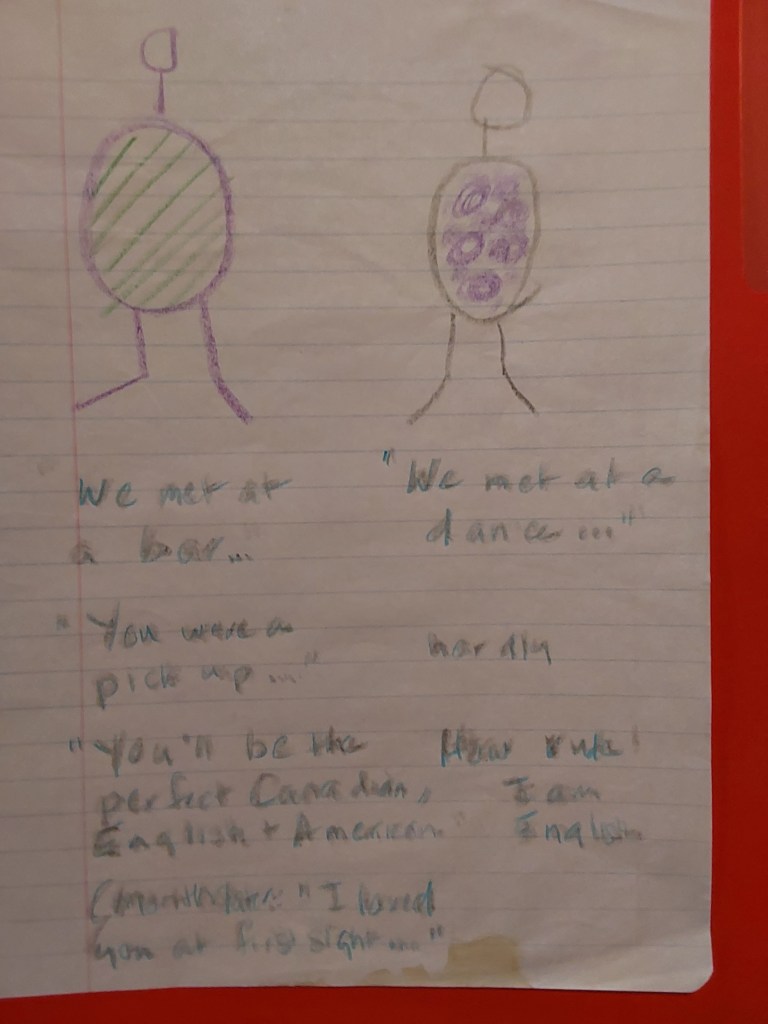 We met at
a bar...
"We met at a
dance..."
"You were a
pick up..."
hardly
"You'll be the
perfect Canadian,
English + American."
How rude!
I am
English
"I loved
you at first sight..."